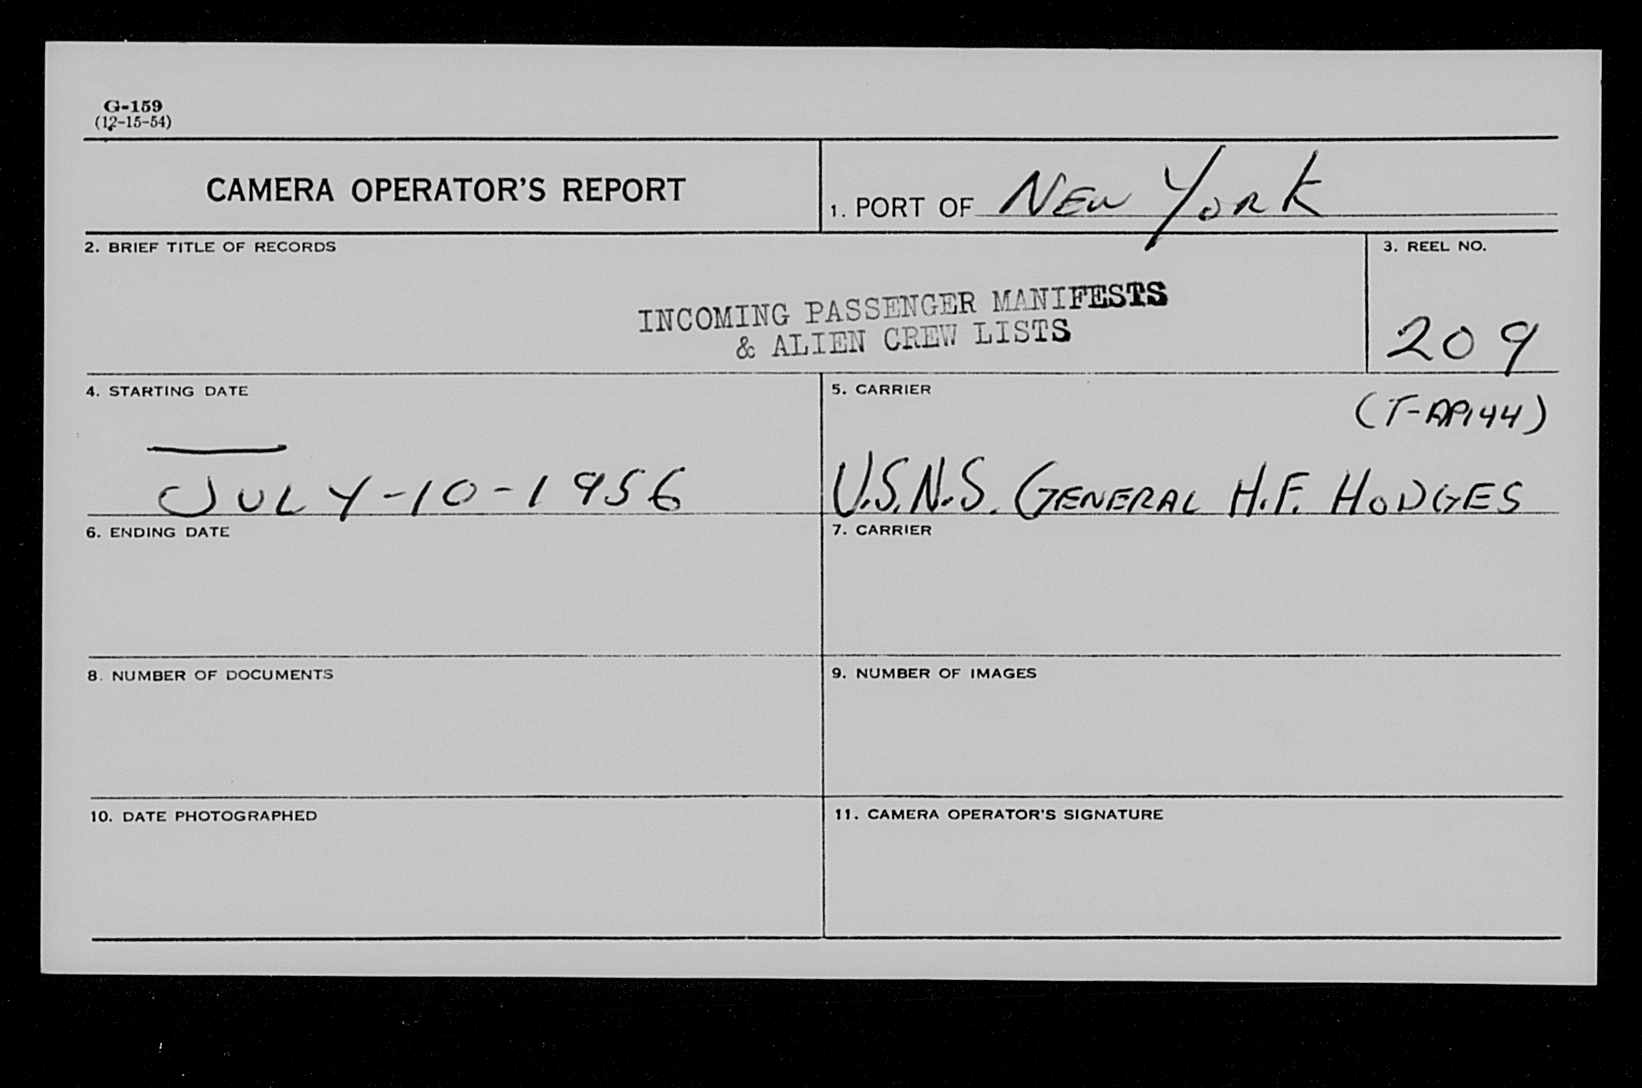 G-159
(12-15-54)
CAMERA OPERATOR'S REPORT
1. PORT OF NEW YORK
2. BRIEF TITLE OF RECORDS
INCOMING PASSENGER MANIFESTS
& ALIEN CREW LISTS
3. REEL NO.
209
4. STARTING DATE
JULY-10-1956
5. CARRIER
(T-AP144)
U.S.N.S. GENERAL H.F. HODGES
6. ENDING DATE
7. CARRIER
8. NUMBER OF DOCUMENTS
9. NUMBER OF IMAGES
10. DATE PHOTOGRAPHED
11. CAMERA OPERATOR'S SIGNATURE